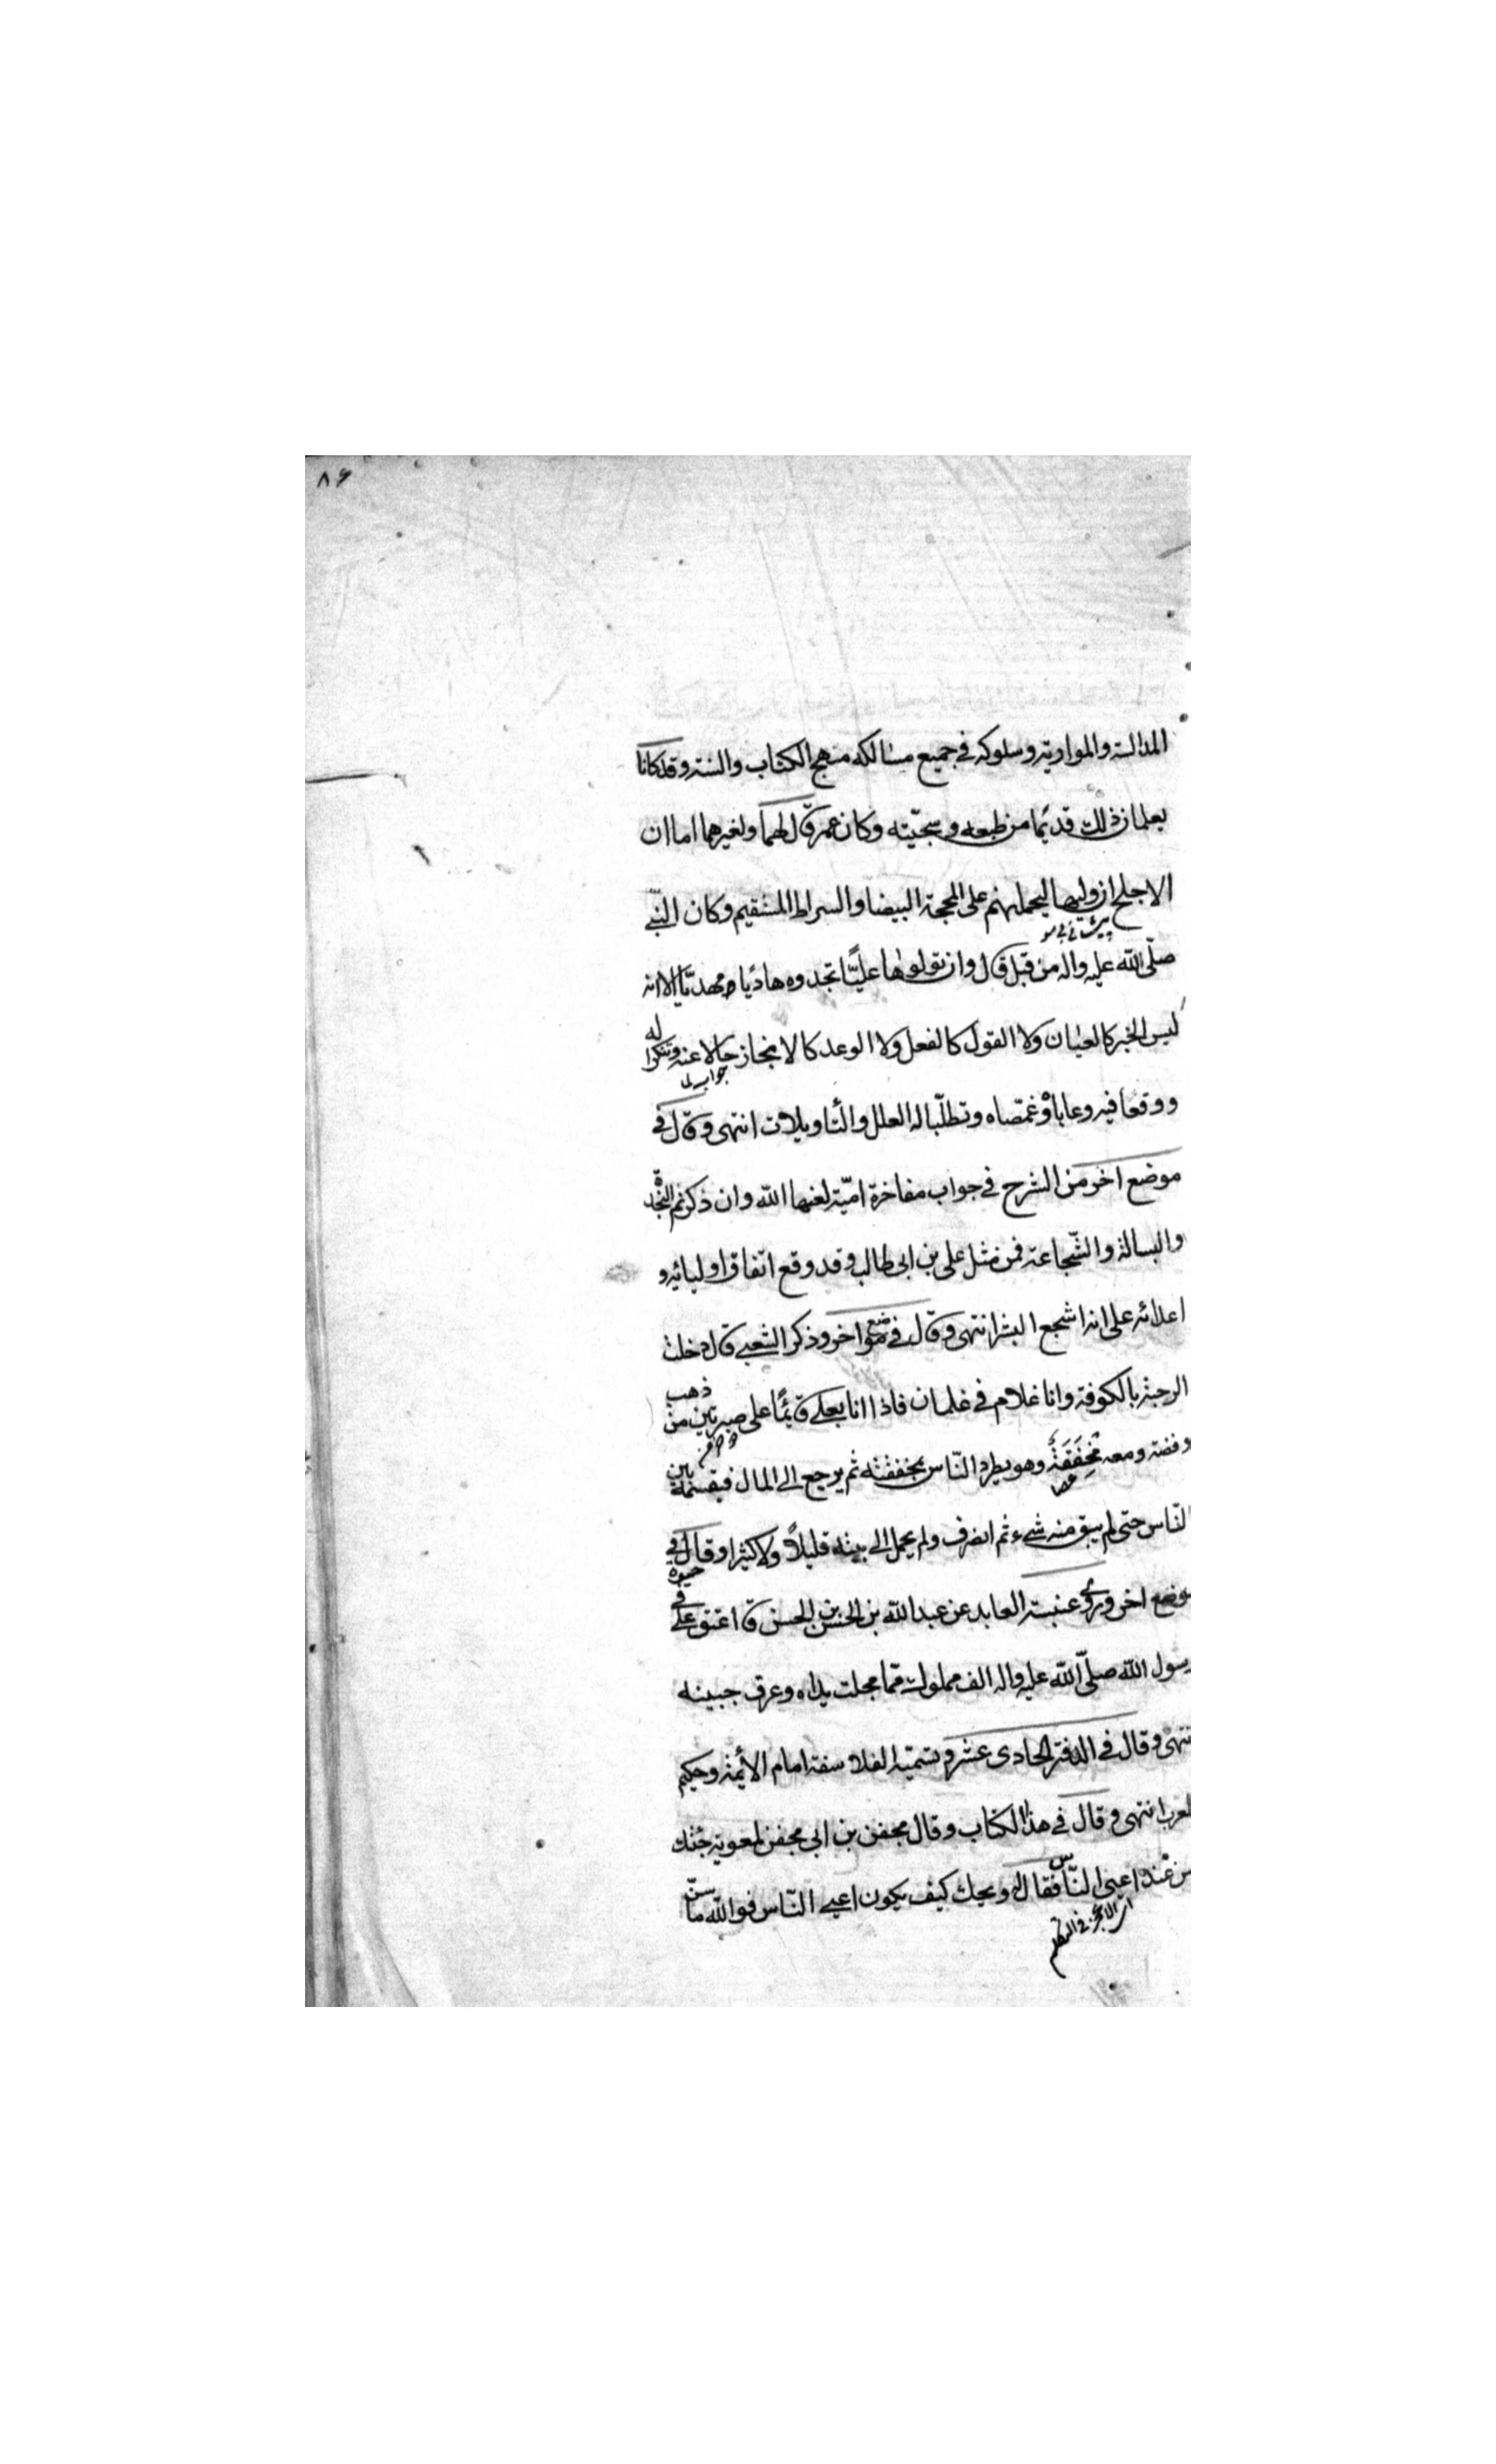 ٨۶
المدالسة والمواربة وسلوكه في جميع مسالكه منهج الكتاب والسنة وقد كانا
يعلمان ذلك قديمًا من طبعه وسجيّته وكان عمر قال لهما ولغيرهما اما ان
الاجلح ان وليها ليحملنهم على المحجة البيضا والسراط المستقيم وكان النبّي
صلّى الله عليه واله من قبل قال وان تولوها عليًّا تجدوه هاديًا مهديّا الا انه
ليس الخبر كالعيان ولا القول كالفعل ولا الوعد كالانجاز حالا عنه وتنكرا له
جواب لما
ووقعا فيه وعاباه وغمصاه وتطلّبا له العلل والتّاويلات انتهى وقال في
موضع اخر من الشرح في جواب مفاخرة اميّة لعنها الله وان ذكرتم النجدة
والبسالة والشّجاعة فمن مثل على بن ابى طالب وقد وقع اتفاق اوليائه و
اعدائه على انه اشجع البشر انتهى وقال في موضع اخر وذكر الشعبي قال دخلت
الرحبة بالكوفة وانا غلام في غلمان فاذا انا بعلي قائمًا على صبرتين من ذهب
وفضة ومعه مِخفَقَةٌ وهو يطرد النّاس بمخفقته ثم يرجع الى المال فيقسمه بين
النّاس حتى لم يبق منه شىء ثم انصرف ولم يحمل الى بيته قليلاً ولا كثيرا وقال في
موضع اخر وروى عنبسة العابد عن عبد الله بن الحسين بن الحسن قا اعتق علي في حيوة
رسول الله صلّى الله عليه واله الف مملوك ممّا مجلت يداه وعرق جبينه
انتهى وقال في الدفتر الحادى عشر وتسمّيه الفلاسفة امام الأئمة وحكيم
العرب انتهى وقال في هذا الكتاب وقال محفن بن ابى محفن لمعوية جئتك
من عند اعيى النّاس فقال له ويحك كيف يكون اعيى النّاس فوالله ما سنّ